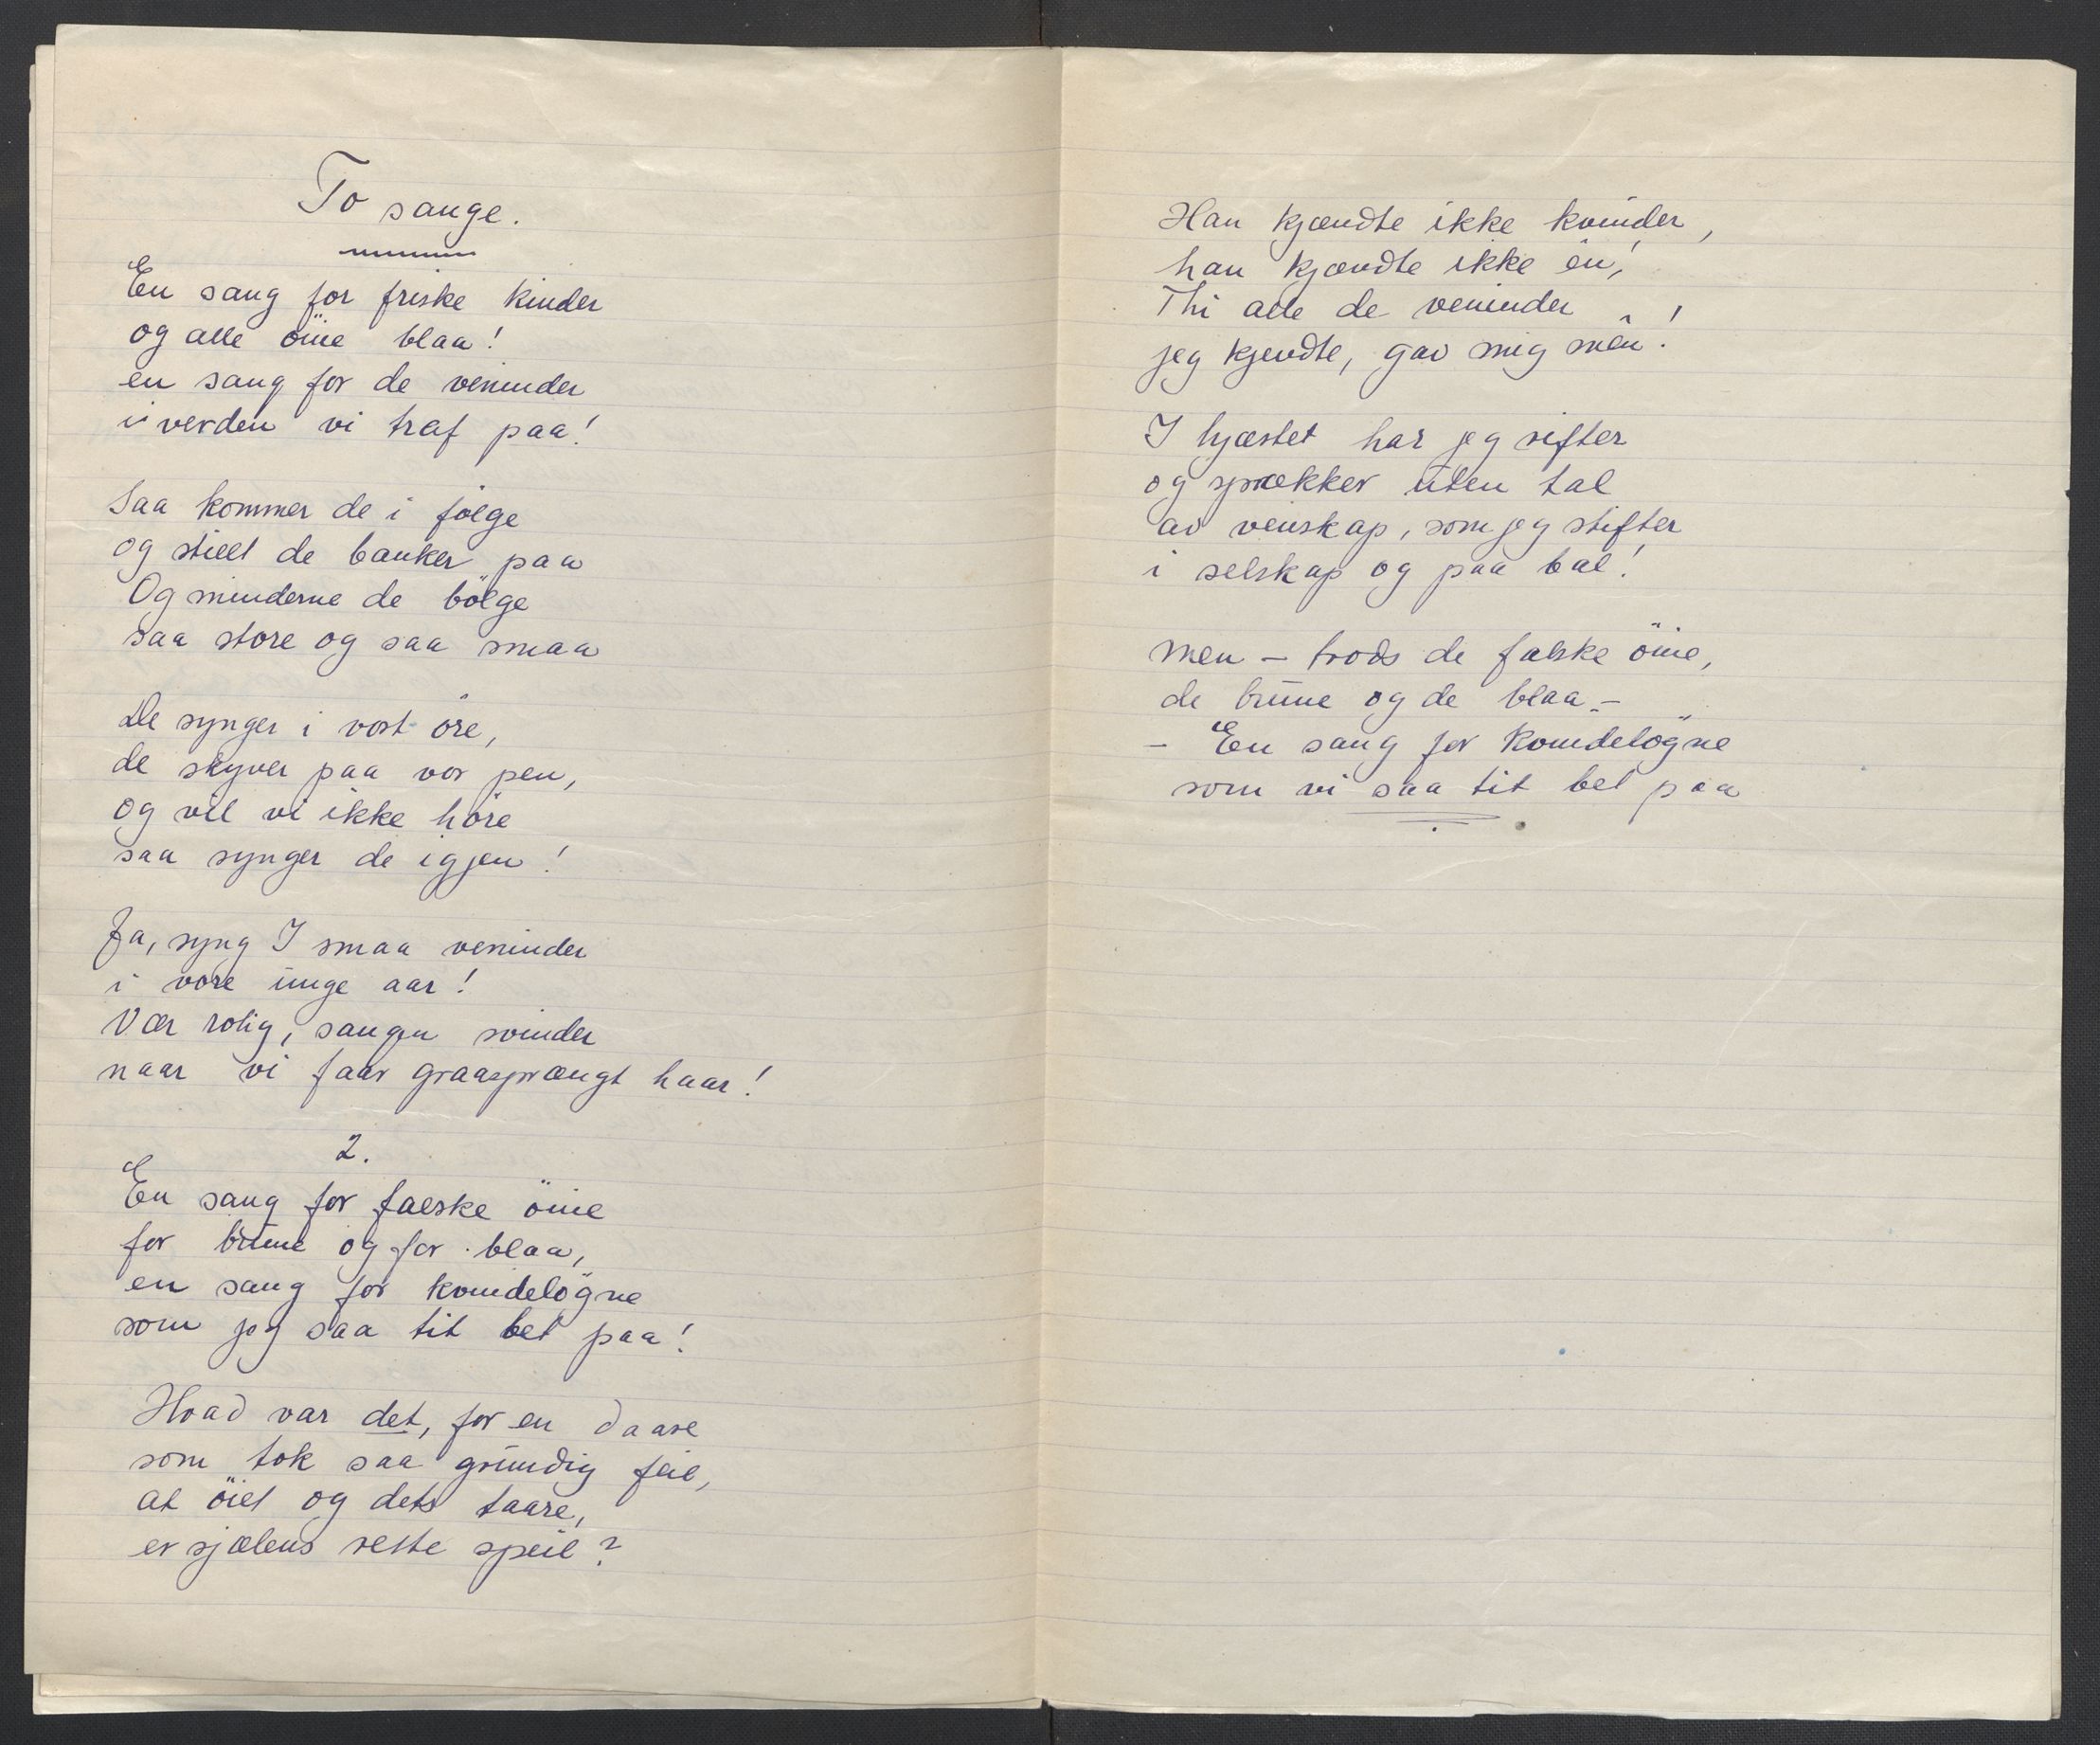 To sange.
En sang for friske kinder
og alle öine blaa!
en sang for de veninder
i verden vi traf paa!
Saa kommer de i fölge
og stillt de banker paa
Og minderne de bölge
saa store og saa smaa
De synger i vort öre,
de skyver paa vor pen,
og vil vi ikke höre
saa synger de igjen!
Ja, syng I smaa veninder
i vore unge aar!
Vær rolig, sangen svinder
naar vi faar graasprængt haar!
2.
En sang for falske öine
for brune og for blaa,
en sang for kvindelögne
som jeg saa tit bet paa!
Hvad var det, for en daare
som tok saa grundig feil,
at öiet og dets taare,
er sjælens rette speil?
Han kjændte ikke kvinder,
han kjændte ikke ên!
Thi alle de veninder
jeg kjendte, gav mig mên!
I hjæstet har jeg rifter
og sprækker uten tal
av venskap, som jeg stifter
i selskap og paa bal!
Men – trods de falske öine,
de brune og de blaa –
– En sang for kvindelögne
som vi saa tit bet paa